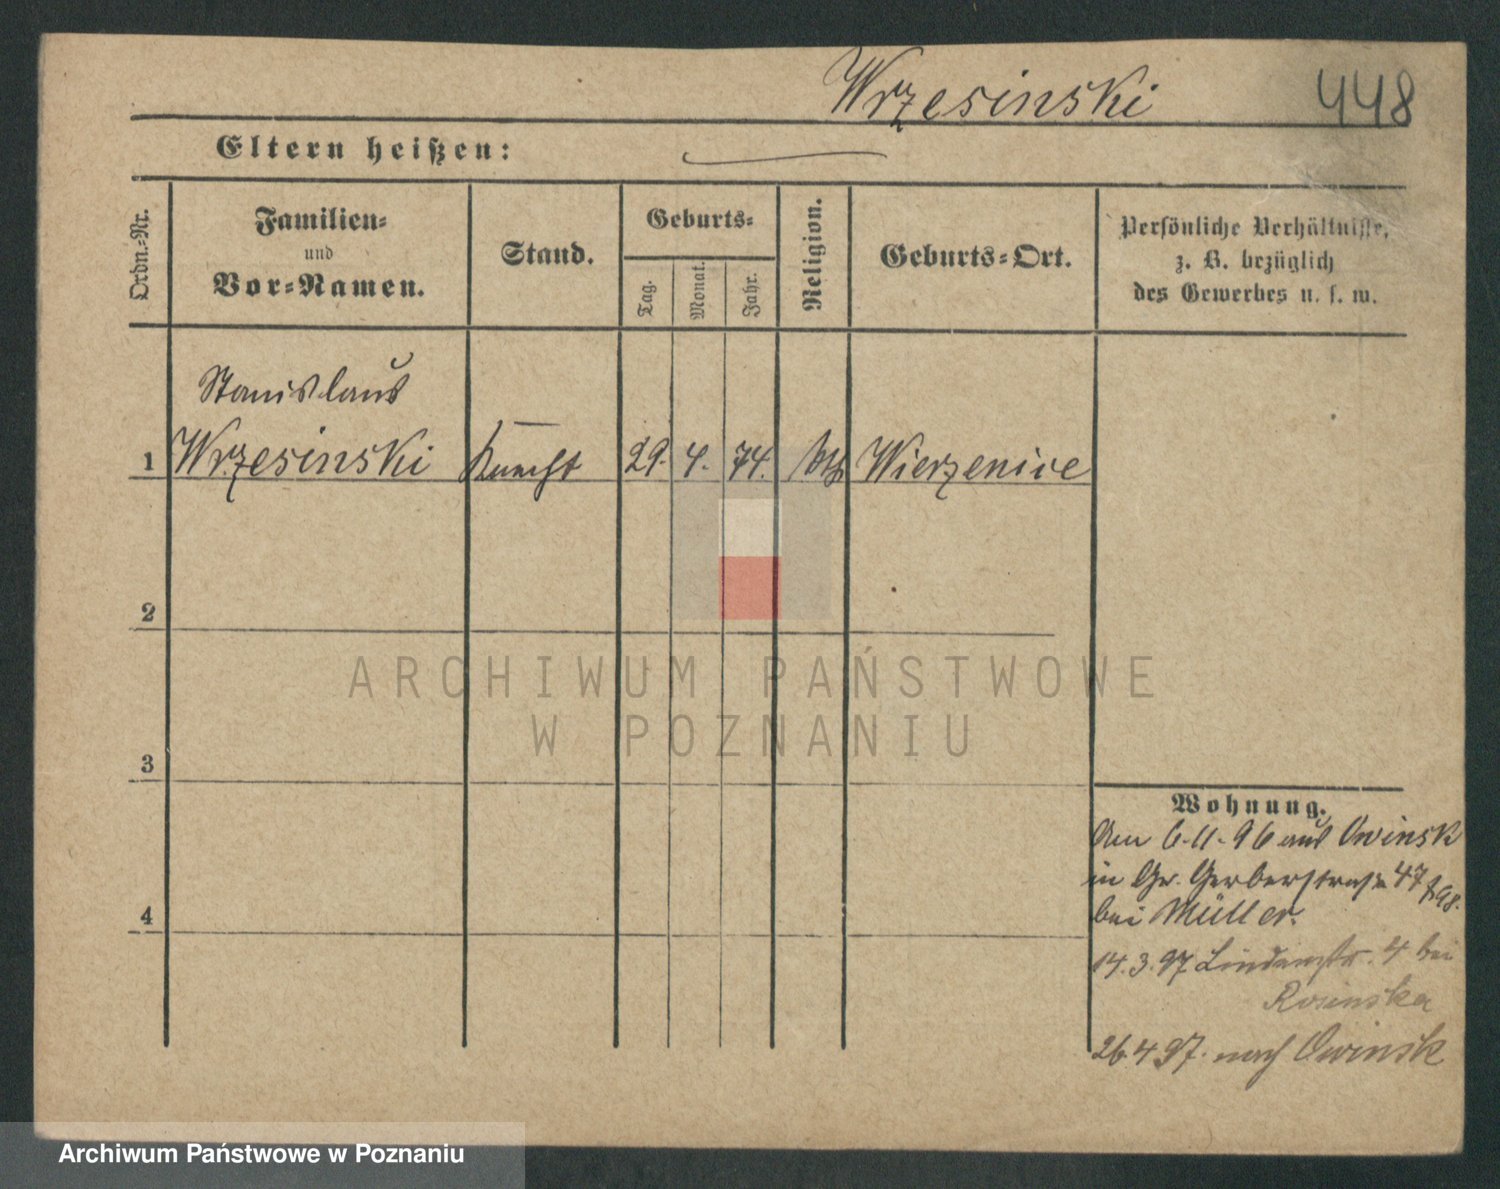 Wrzesinski 448
Eltern heißen:
Ordn.-Nr.
Familien-
und
Vor-Namen.
Stand.
Geburts-
Tag.
Monat.
Jahr.
Religion.
Geburts-Ort.
Persönliche Verhältnisse,
z. B. bezüglich
des Gewerbes u. s. w.
Stanislaus
1 Wrzesinski Knecht 29. 4. 74. kth Wierzenice
2
3
4
ARCHIWUM PAŃSTWOWE
W POZNANIU
Wohnung.
Am 6.11.96 aus Owinsk
in Gr. Gerberstraße 47
bei Müller.
14.3.97 Lindenstr. 4 bei
Rosinska
26 4 97. nach Owinsk
Archiwum Państwowe w Poznaniu